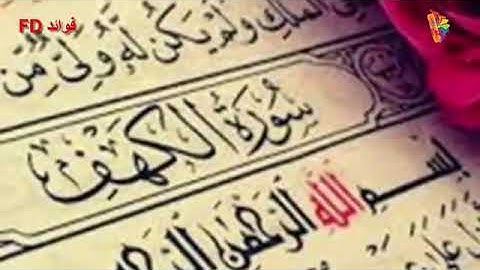 فوائد FD
فِي الْمُلْكِ وَلَمْ يَكُن لَّهُ وَلِيٌّ مِّنَ
سُورَةُ الْكَهْفِ
بِسْمِ اللَّهِ الرَّحْمَٰنِ